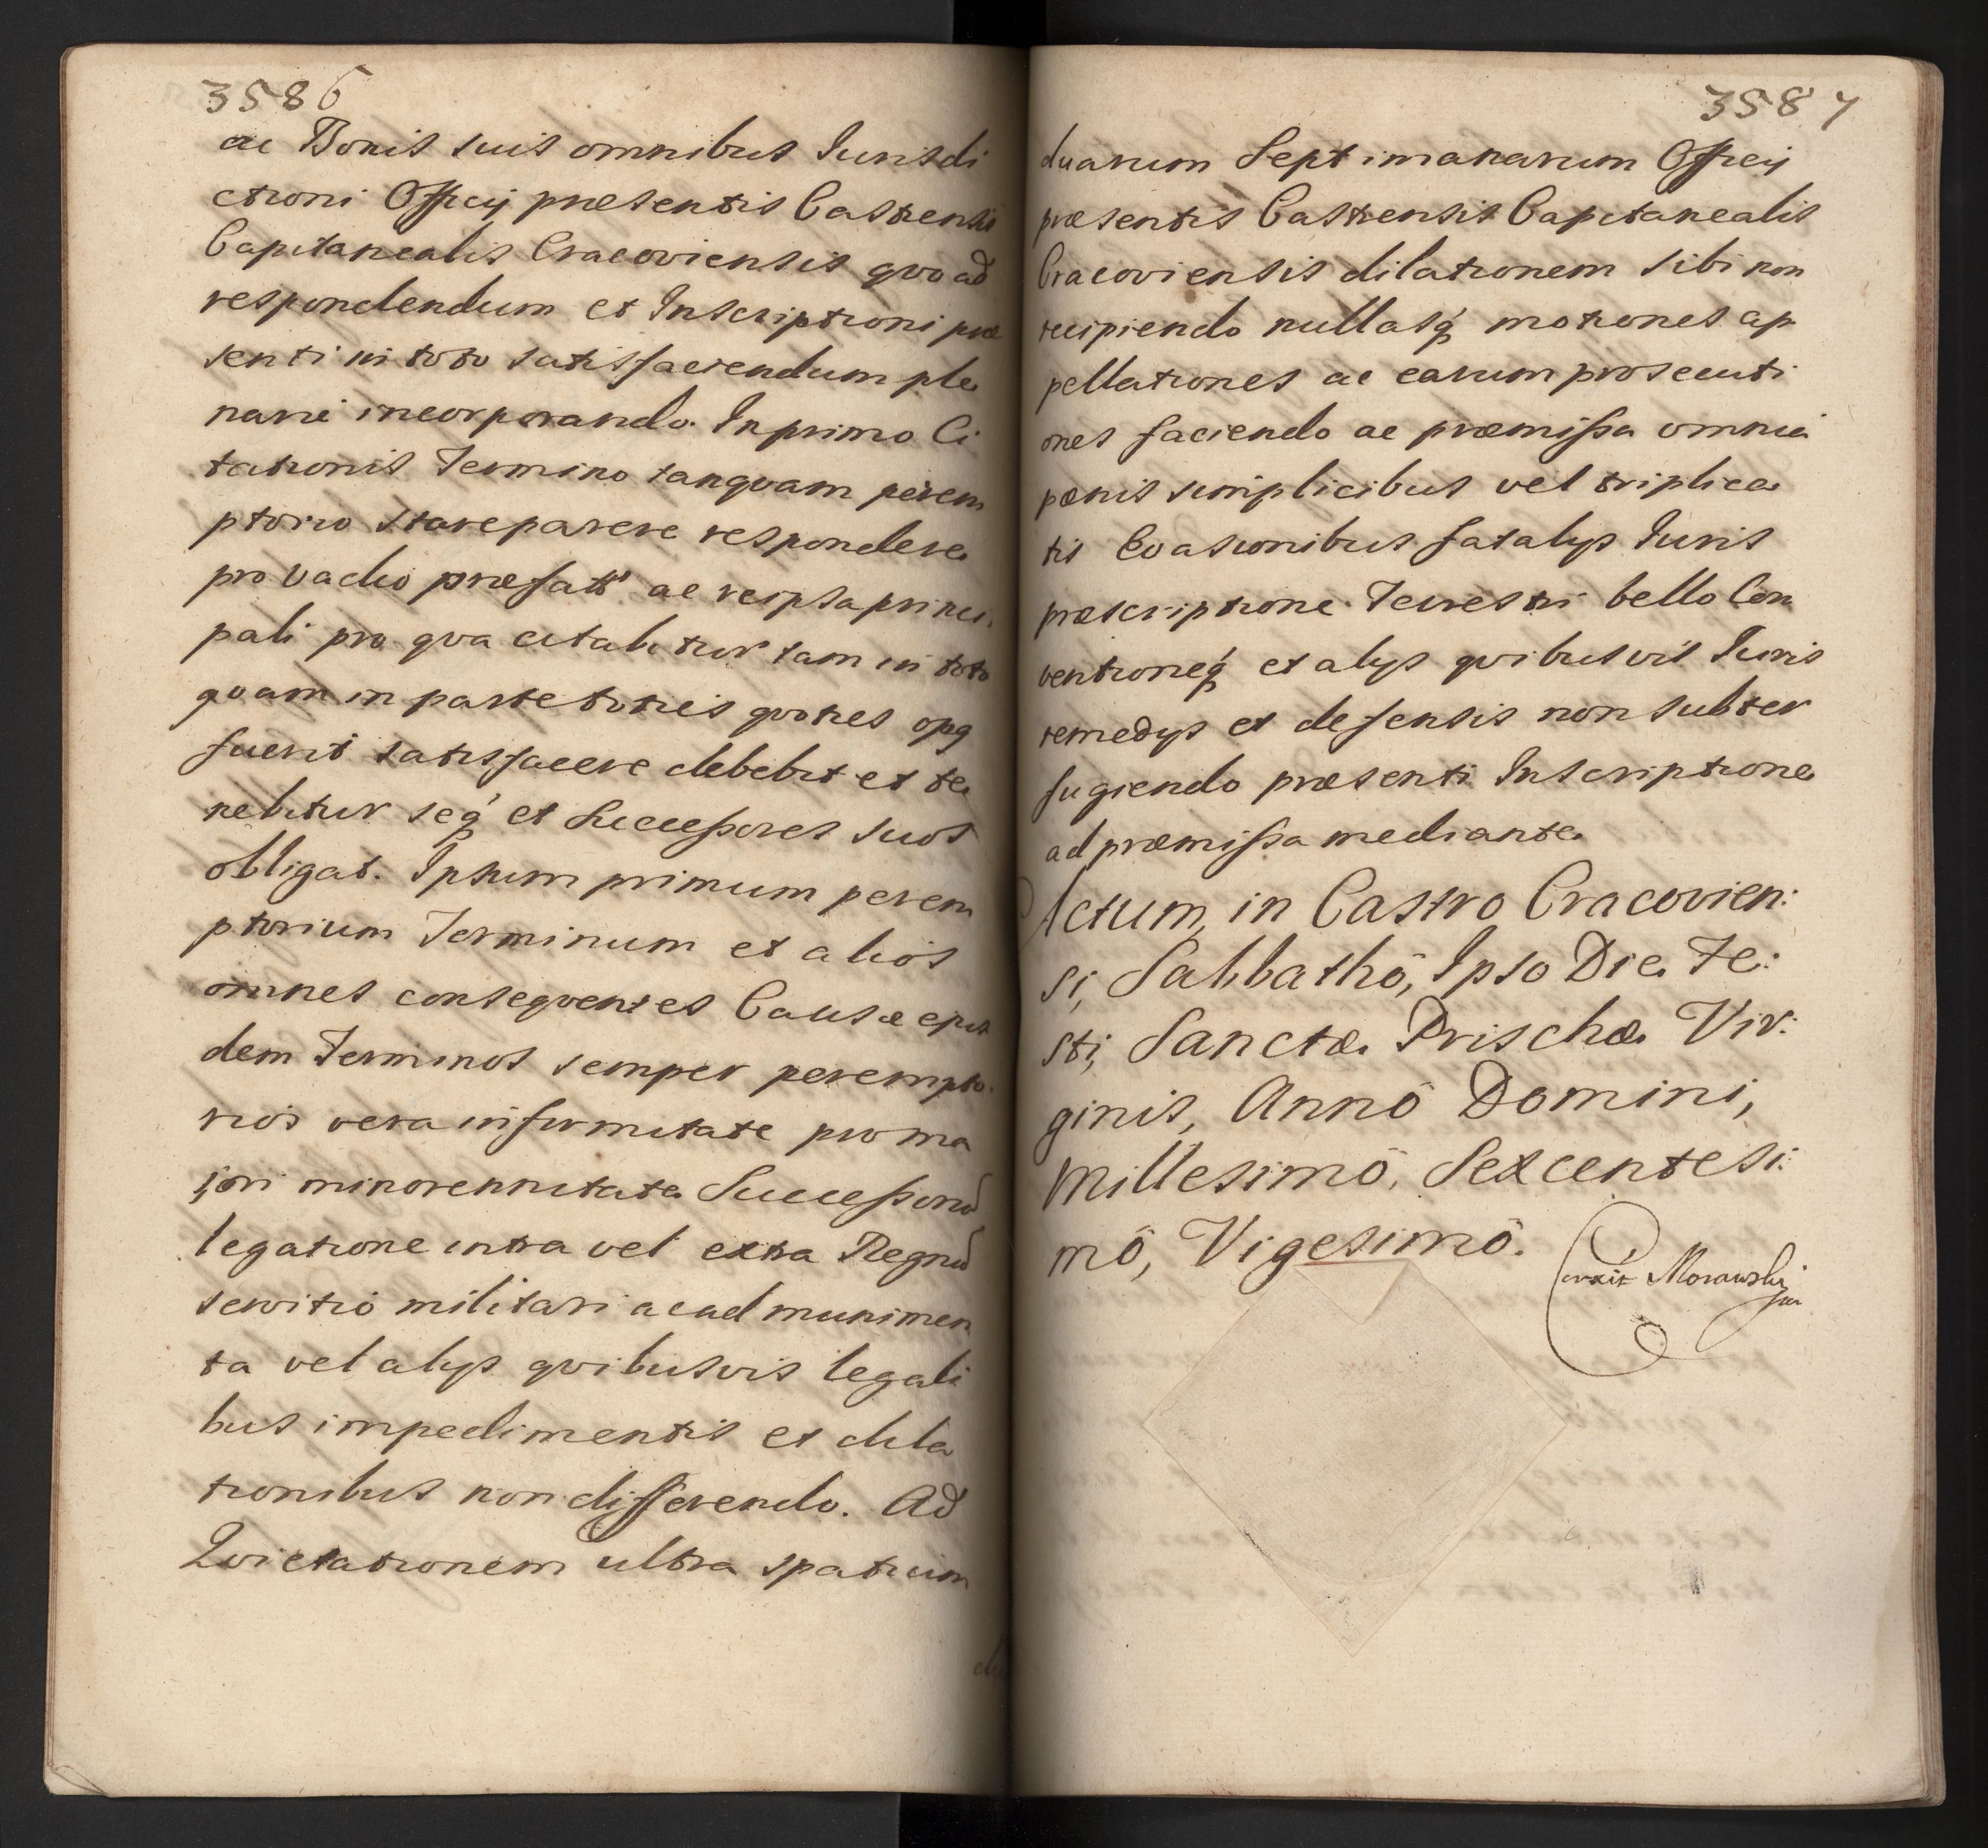 3586
ac Bonis suis omnibus Iurisdi
ctioni Officij præsentis Castrensis
Capitanealis Cracoviensis quo ad
respondendum et Inscriptioni præ
senti in toto satisfaciendum ple
narie incorporando. In primo Ci
tationis Termino tanquam perem
ptorio stare parere respondere
pro vadio præfato ac re ipsa princi
pali pro qua citabitur tam in toto
quam in parte toties quoties opg
fuerit satisfacere debebit et te
nebitur seq́ et Successores suos
obligat. Ipsum primum perem
ptorium Terminum et aliös
omnes consequentes Causæ ejus
dem Terminos semper perempto
rios vera infirmitate pro ma
jori minorennitate Successorū
legatione intra vel extra Regnū
servitio militari ac ad munimen
ta vel alijs quibusvis legali
bus impedimentis et dila
tionibus non differendo. Ad
Quietationem ultra spatium
3587
duarum Septimanarum Officij
præsentis Castrensis Capitanealis
Cracoviensis dilationem sibi non
recipiendo nullasq́ motiones ap
pellationes ac earum prosecuti
ones faciendo ac præmissa omnia
pœnis simplicibus vel triplica
tis Evasionibus fatalijs Iuris
præscriptione Terrestri bello Con
ventioneq́ et alijs quibusvis Iuris
remedijs et defensis non subter
fugiendo præsenti Inscriptione
ad præmissa mediante
Actum, in Castro Cracovien:
si, Sabbathö, Ipso Die Fe:
sti, Sanctæ Prischæ Vir:
ginis, Annö Domini,
Millesimö, Sexcentesi:
mö, Vigesimö.
Morawski